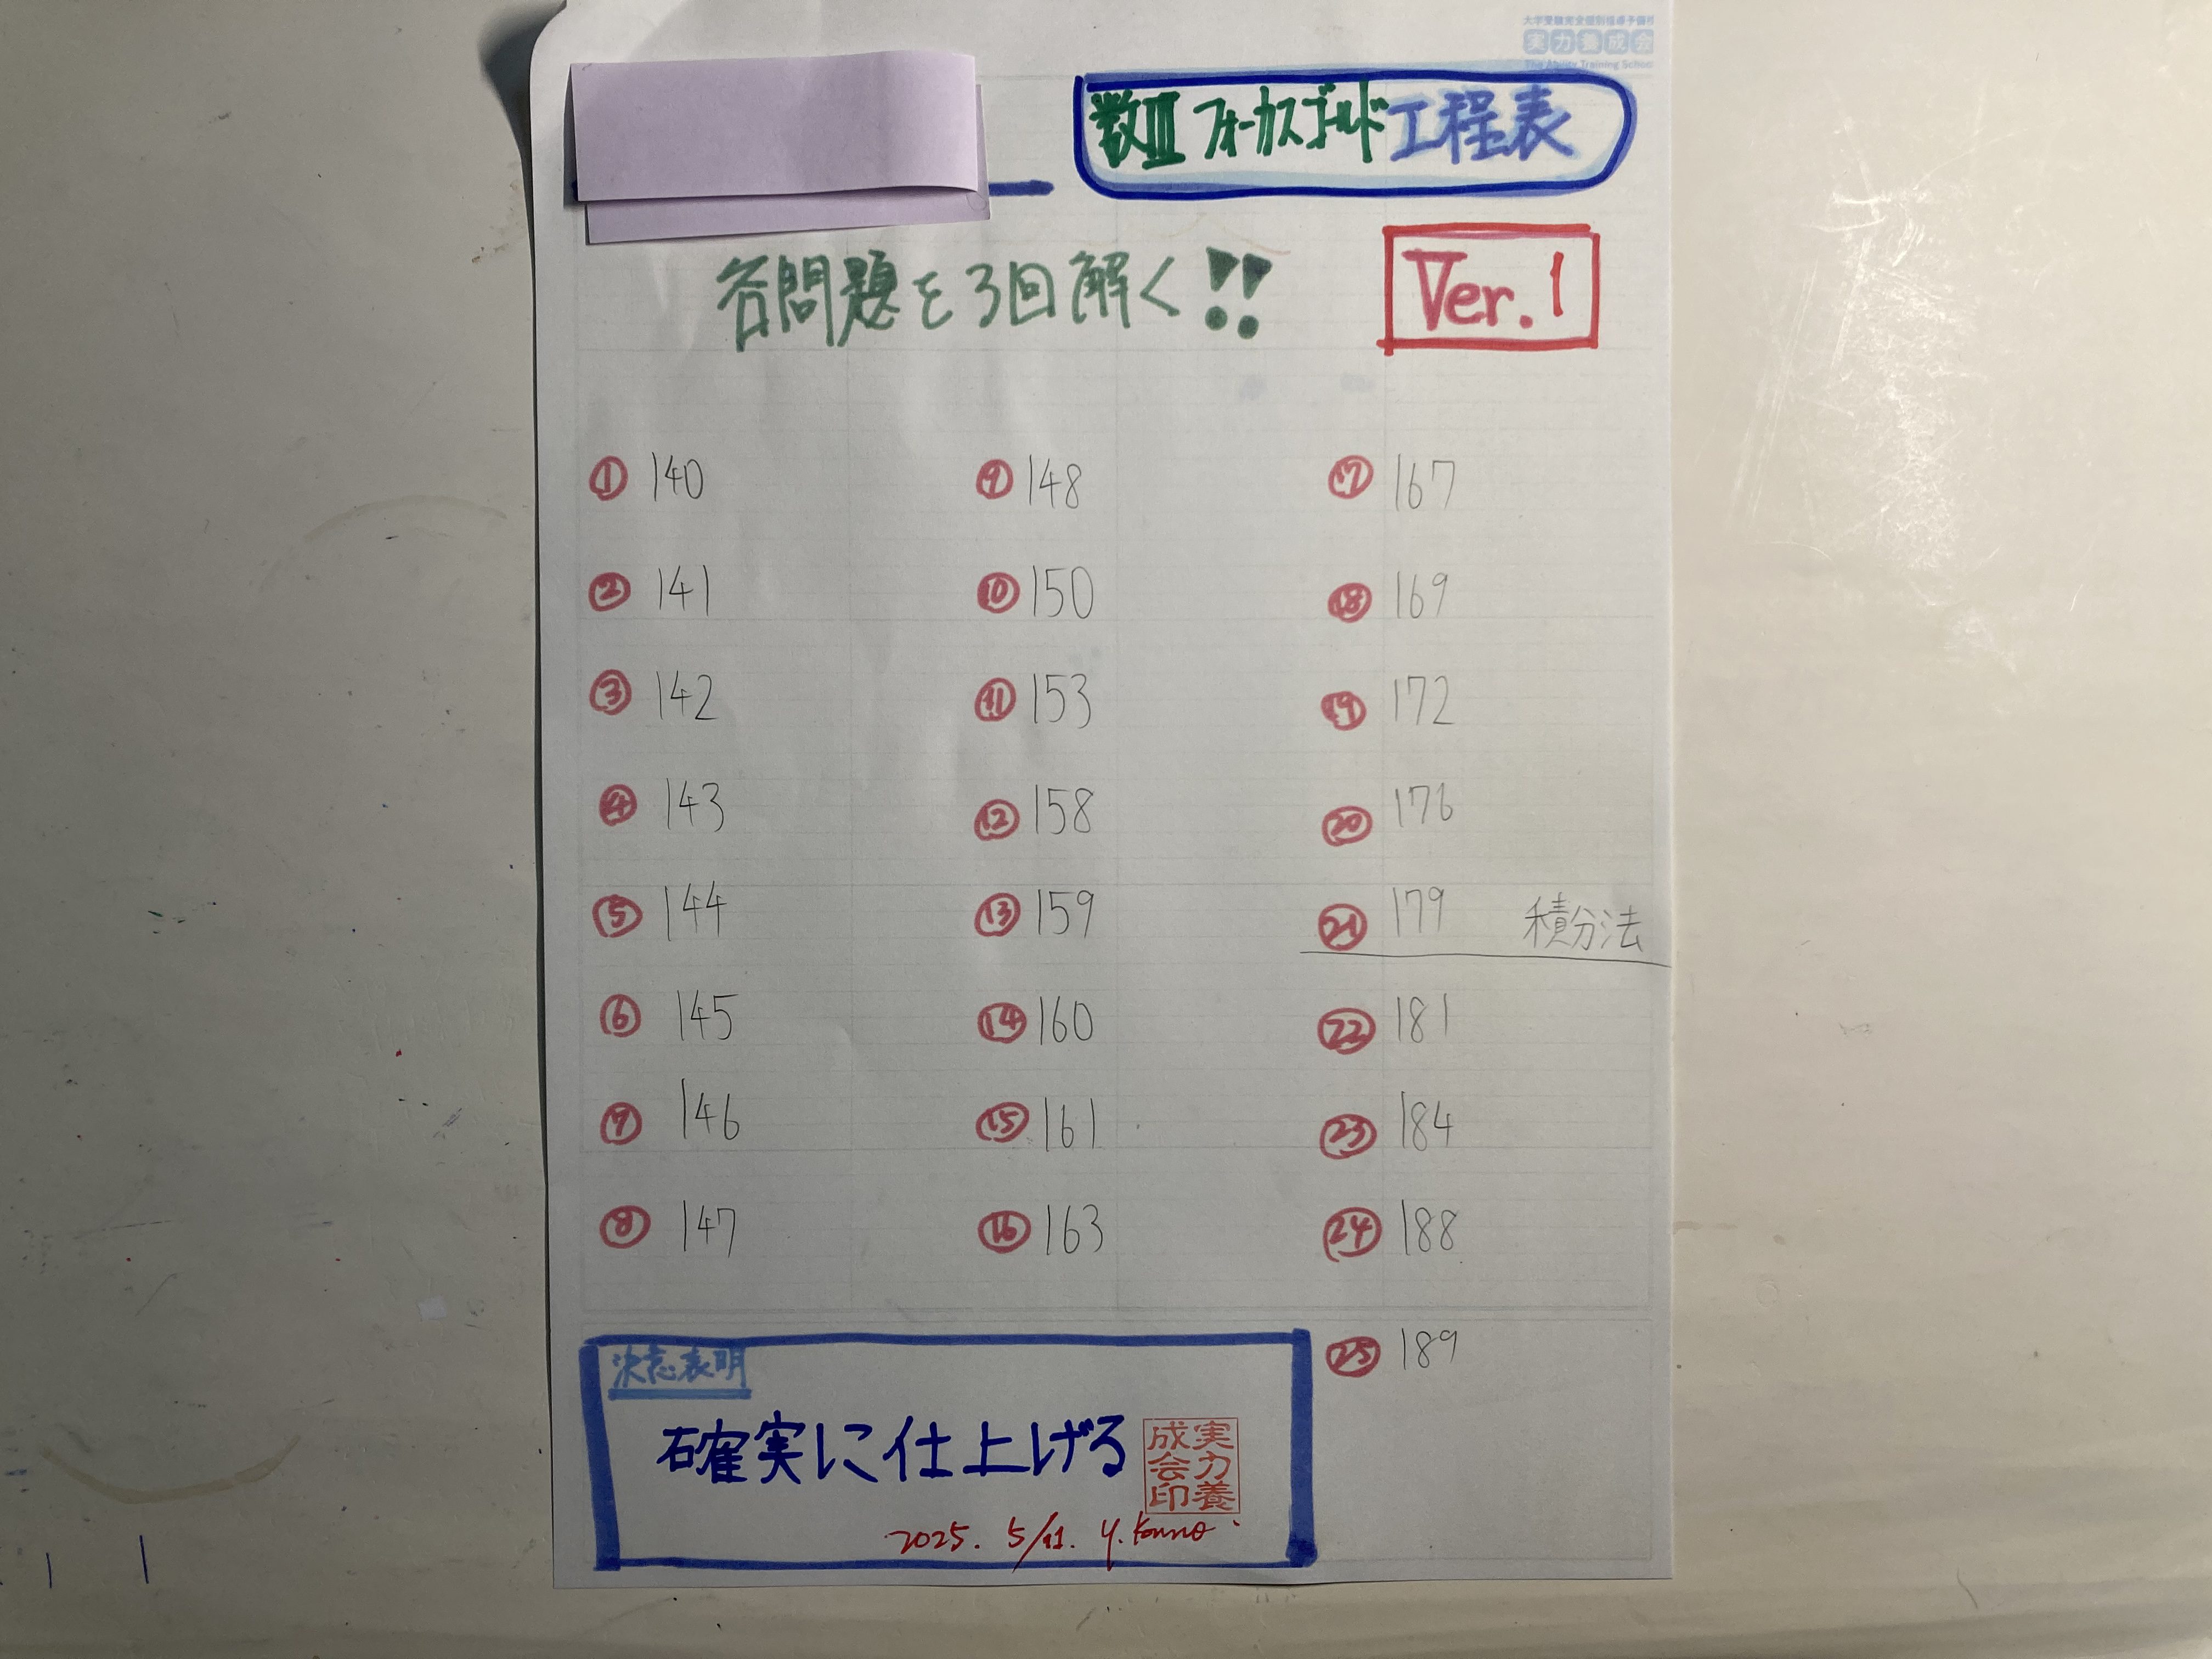 大学受験完全個別指導予備校
実力養成会
The Ability Training School
数Ⅲ フォーカスゴールド工程表
各問題を3回解く!!
Ver.1
① 140
② 141
③ 142
④ 143
⑤ 144
⑥ 145
⑦ 146
⑧ 147
⑨ 148
⑩ 150
⑪ 153
⑫ 158
⑬ 159
⑭ 160
⑮ 161
⑯ 163
⑰ 167
⑱ 169
⑲ 172
⑳ 176
㉑ 179 積分法
㉒ 181
㉓ 184
㉔ 188
㉕ 189
決意表明
確実に仕上げる
実力養成会印
2025. 5/11. Y. Konno